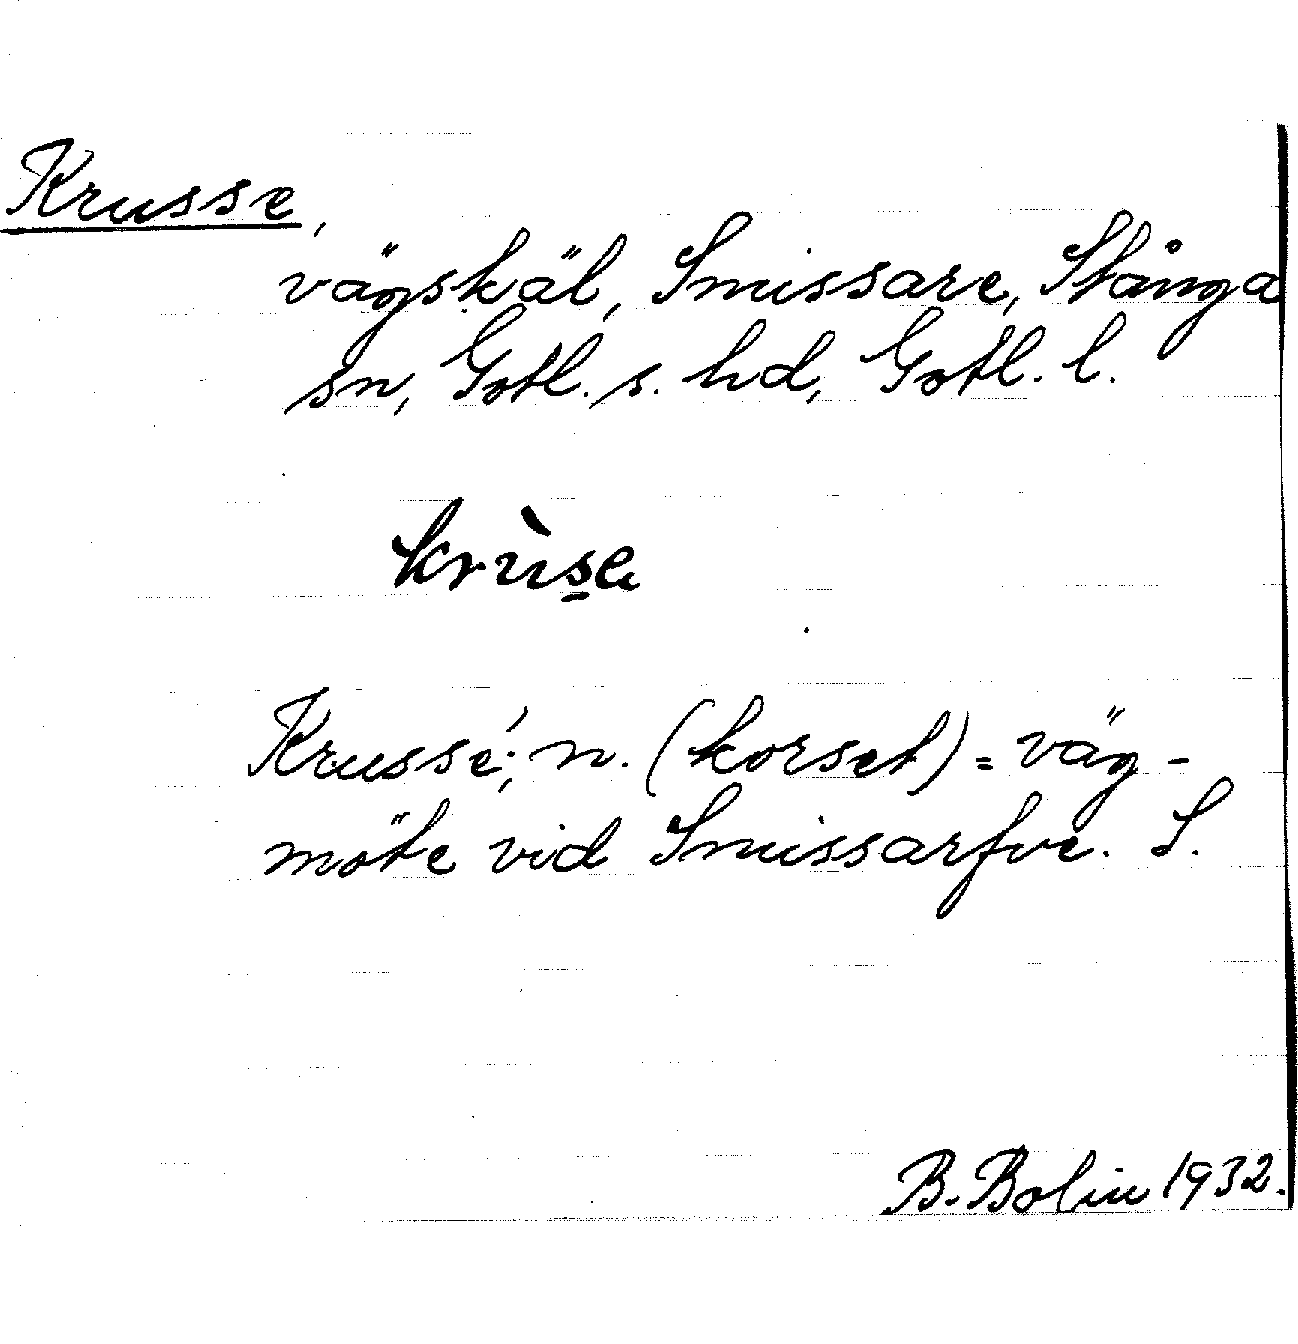 Krusse,
vägskäl, Smissare, Stånga
sn, Gotl. s. hd, Gotl. l.
krùs̱e
Krussé; n. (korset) = väg-
möte vid Smissarfve. S.
B. Bolin 1932.